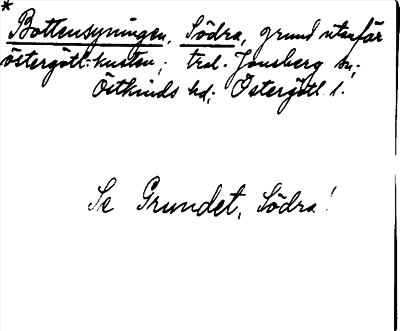 * Bottensyningen, Södra, grund utanför
östergötl. kusten, tral. Jonsberg sn;
Östkinds hd; Östergötl. l.
Se Grundet, Södra!